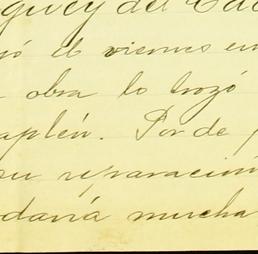 guey del Ca
yó el viernes en
obra lo trozó
aplén. Por de
su reparación
daría mucha